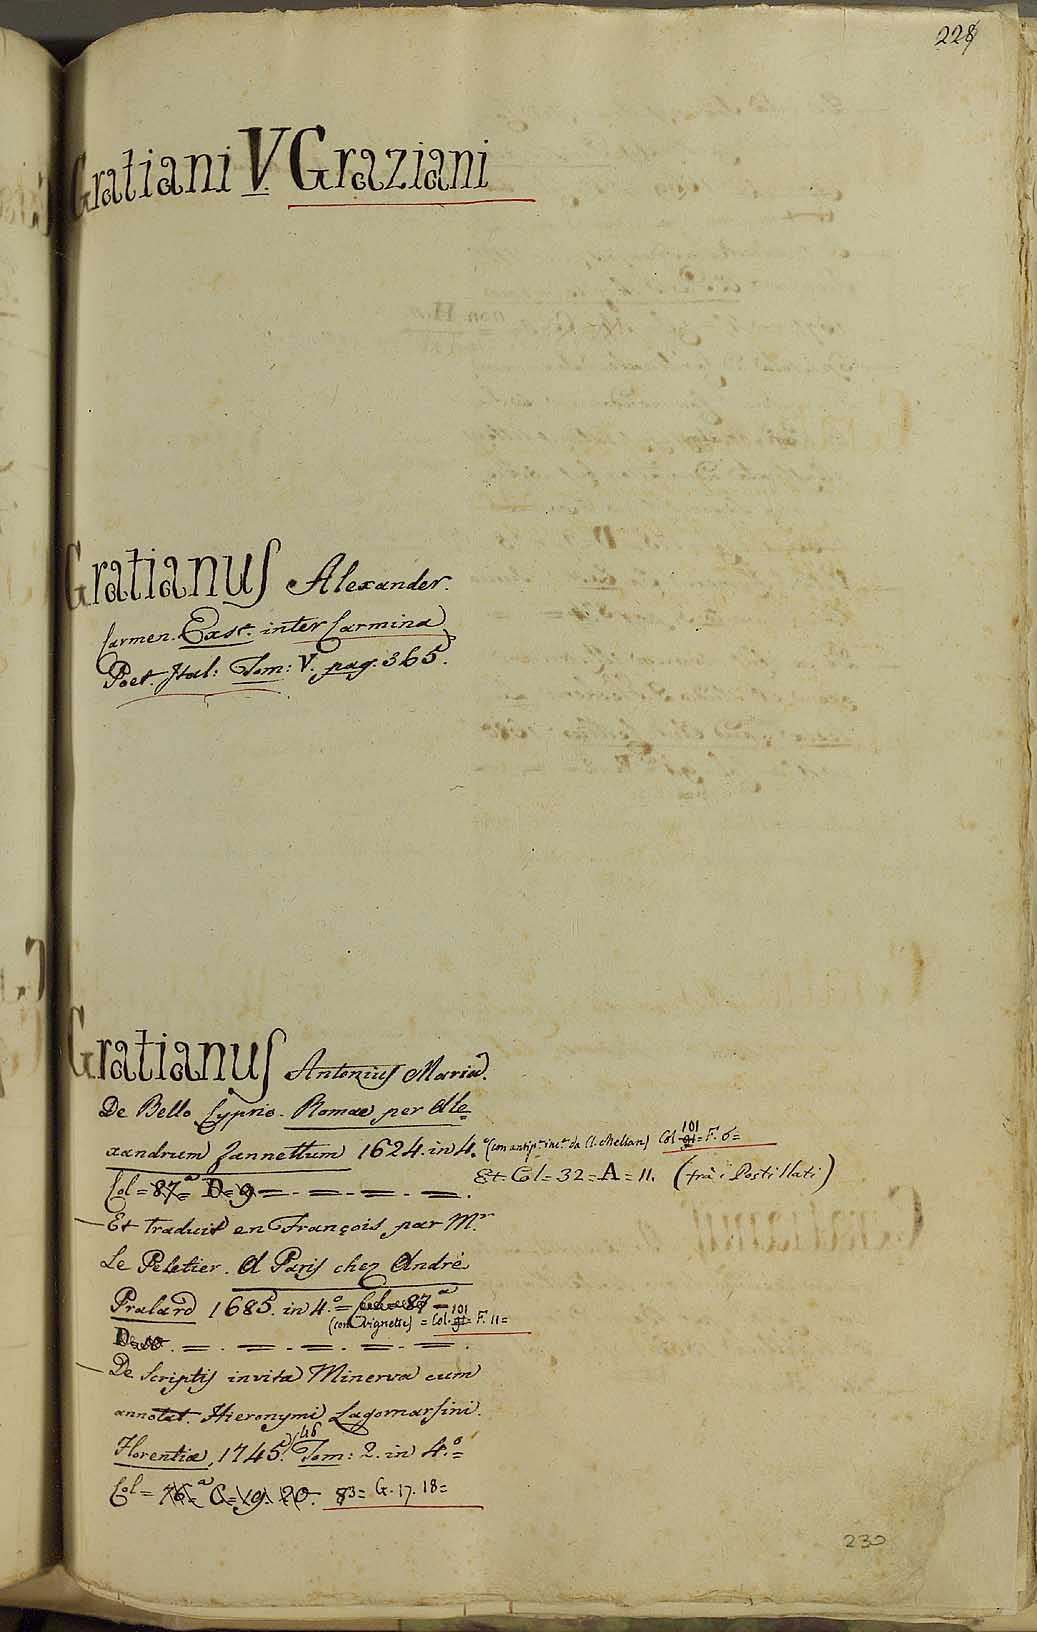 228
Gratiani V. Graziani
Gratianus Alexander.
Carmen. Exst. inter Carmina
Poet. Ital: Tom: V. pag. 365.
Gratianus Antonius Maria.
De Bello Cyprio. Romae per Ale=
xandrum Zannettum 1624. in 4.° (con antip. inc. da Cl. Mellan) Col 101 91 = F. 6=
Col = 87=ª D=9= =. =. =. =. Et Col=32=A=11. (frà i Postillati)
— Et traduit en François par Mr
Le Peletier. A Paris chez André
Pralard 1685. in 4.° = Col=87=ª
(con Vignette) = Col. 101 91= F. 11=
D=10. =. =. =. =. =.
— De Scriptis invita Minerva cum
annotat. Hieronymi Lagomarsini.
Florentiae, 1745. 46 Tom: 2. in 4.°=
Col= 76=ª C=19. 20. 83= G. 17. 18=
230